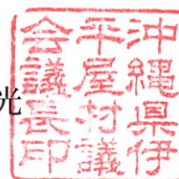 光
沖縄県伊
平屋村議
会議長印